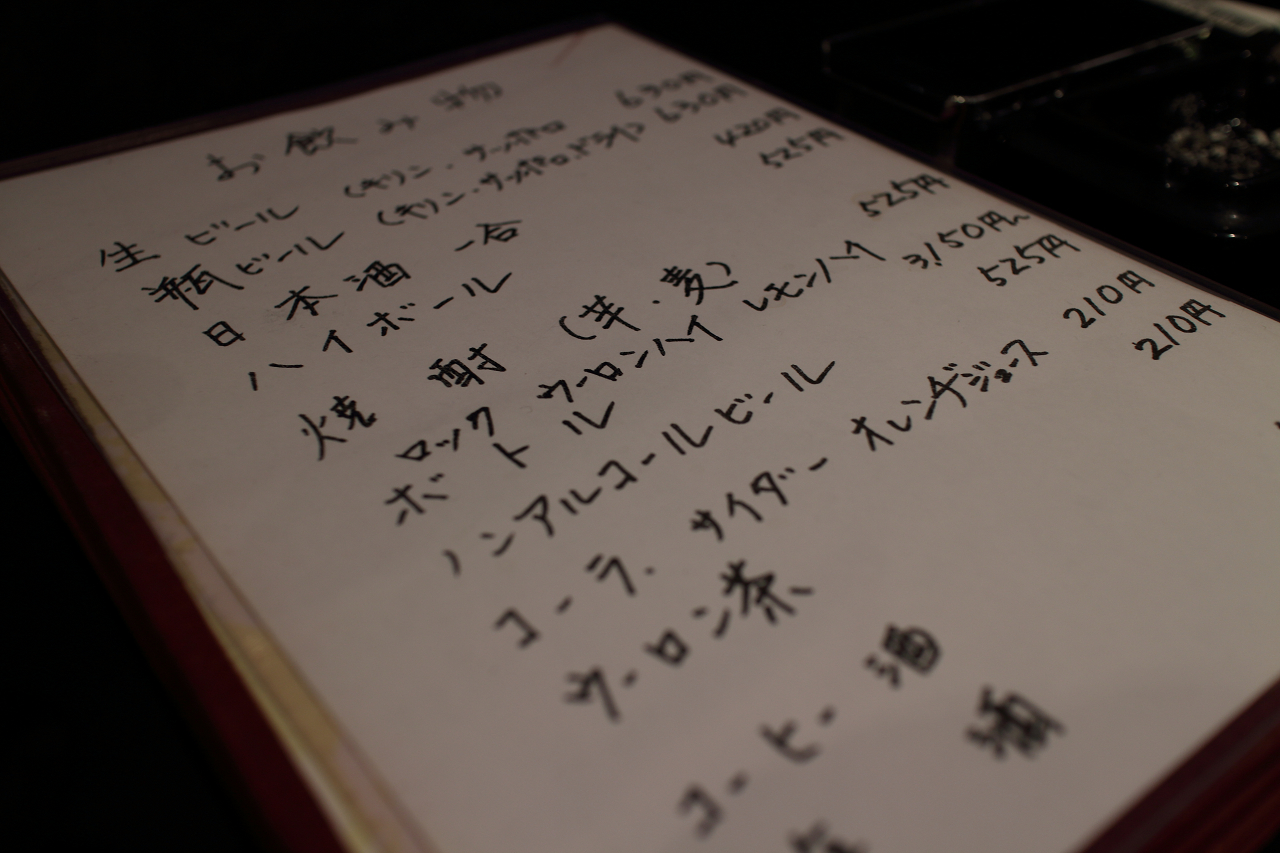 お飲み物
生ビール (キリン・サッポロ 630円
瓶ビール (キリン・サッポロ・ドライ) 630円
日本酒 一合 420円
ハイボール 525円
焼酎 (芋・麦)
ロック ウーロンハイ レモンハイ 525円
ボトル 3,150円~
ノンアルコールビール 525円
コーラ. サイダー オレンジジュース 210円
ウーロン茶 210円
コーヒー酒
酒